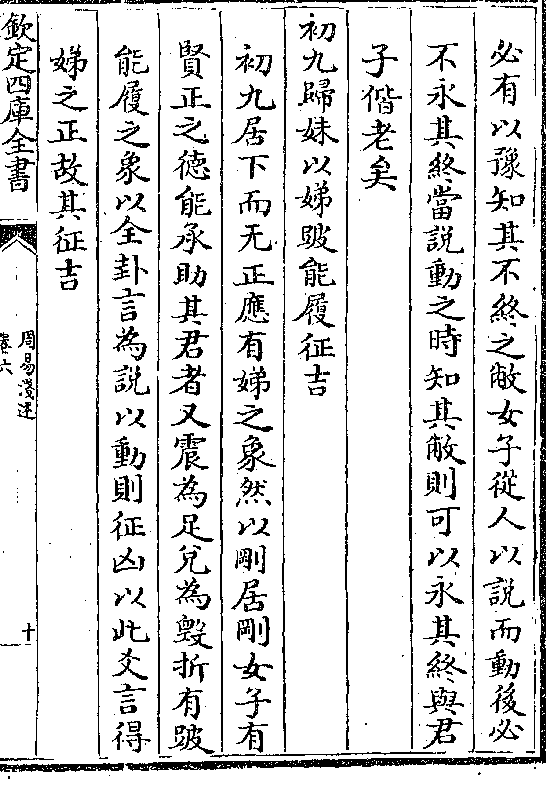 必有以豫知其不終之敝女子從人以說而動後必
不永其終當說動之時知其敝則可以永其終與君
子偕老矣
初九歸妹以娣跛能履征吉
初九居下而无正應有娣之象然以剛居剛女子有
賢正之德能承助其君者又震為足兌為毀折有跛
能履之象以全卦言為說以動則征凶以此爻言得
娣之正故其征吉
欽定四庫全書
周易淺述
卷六
十